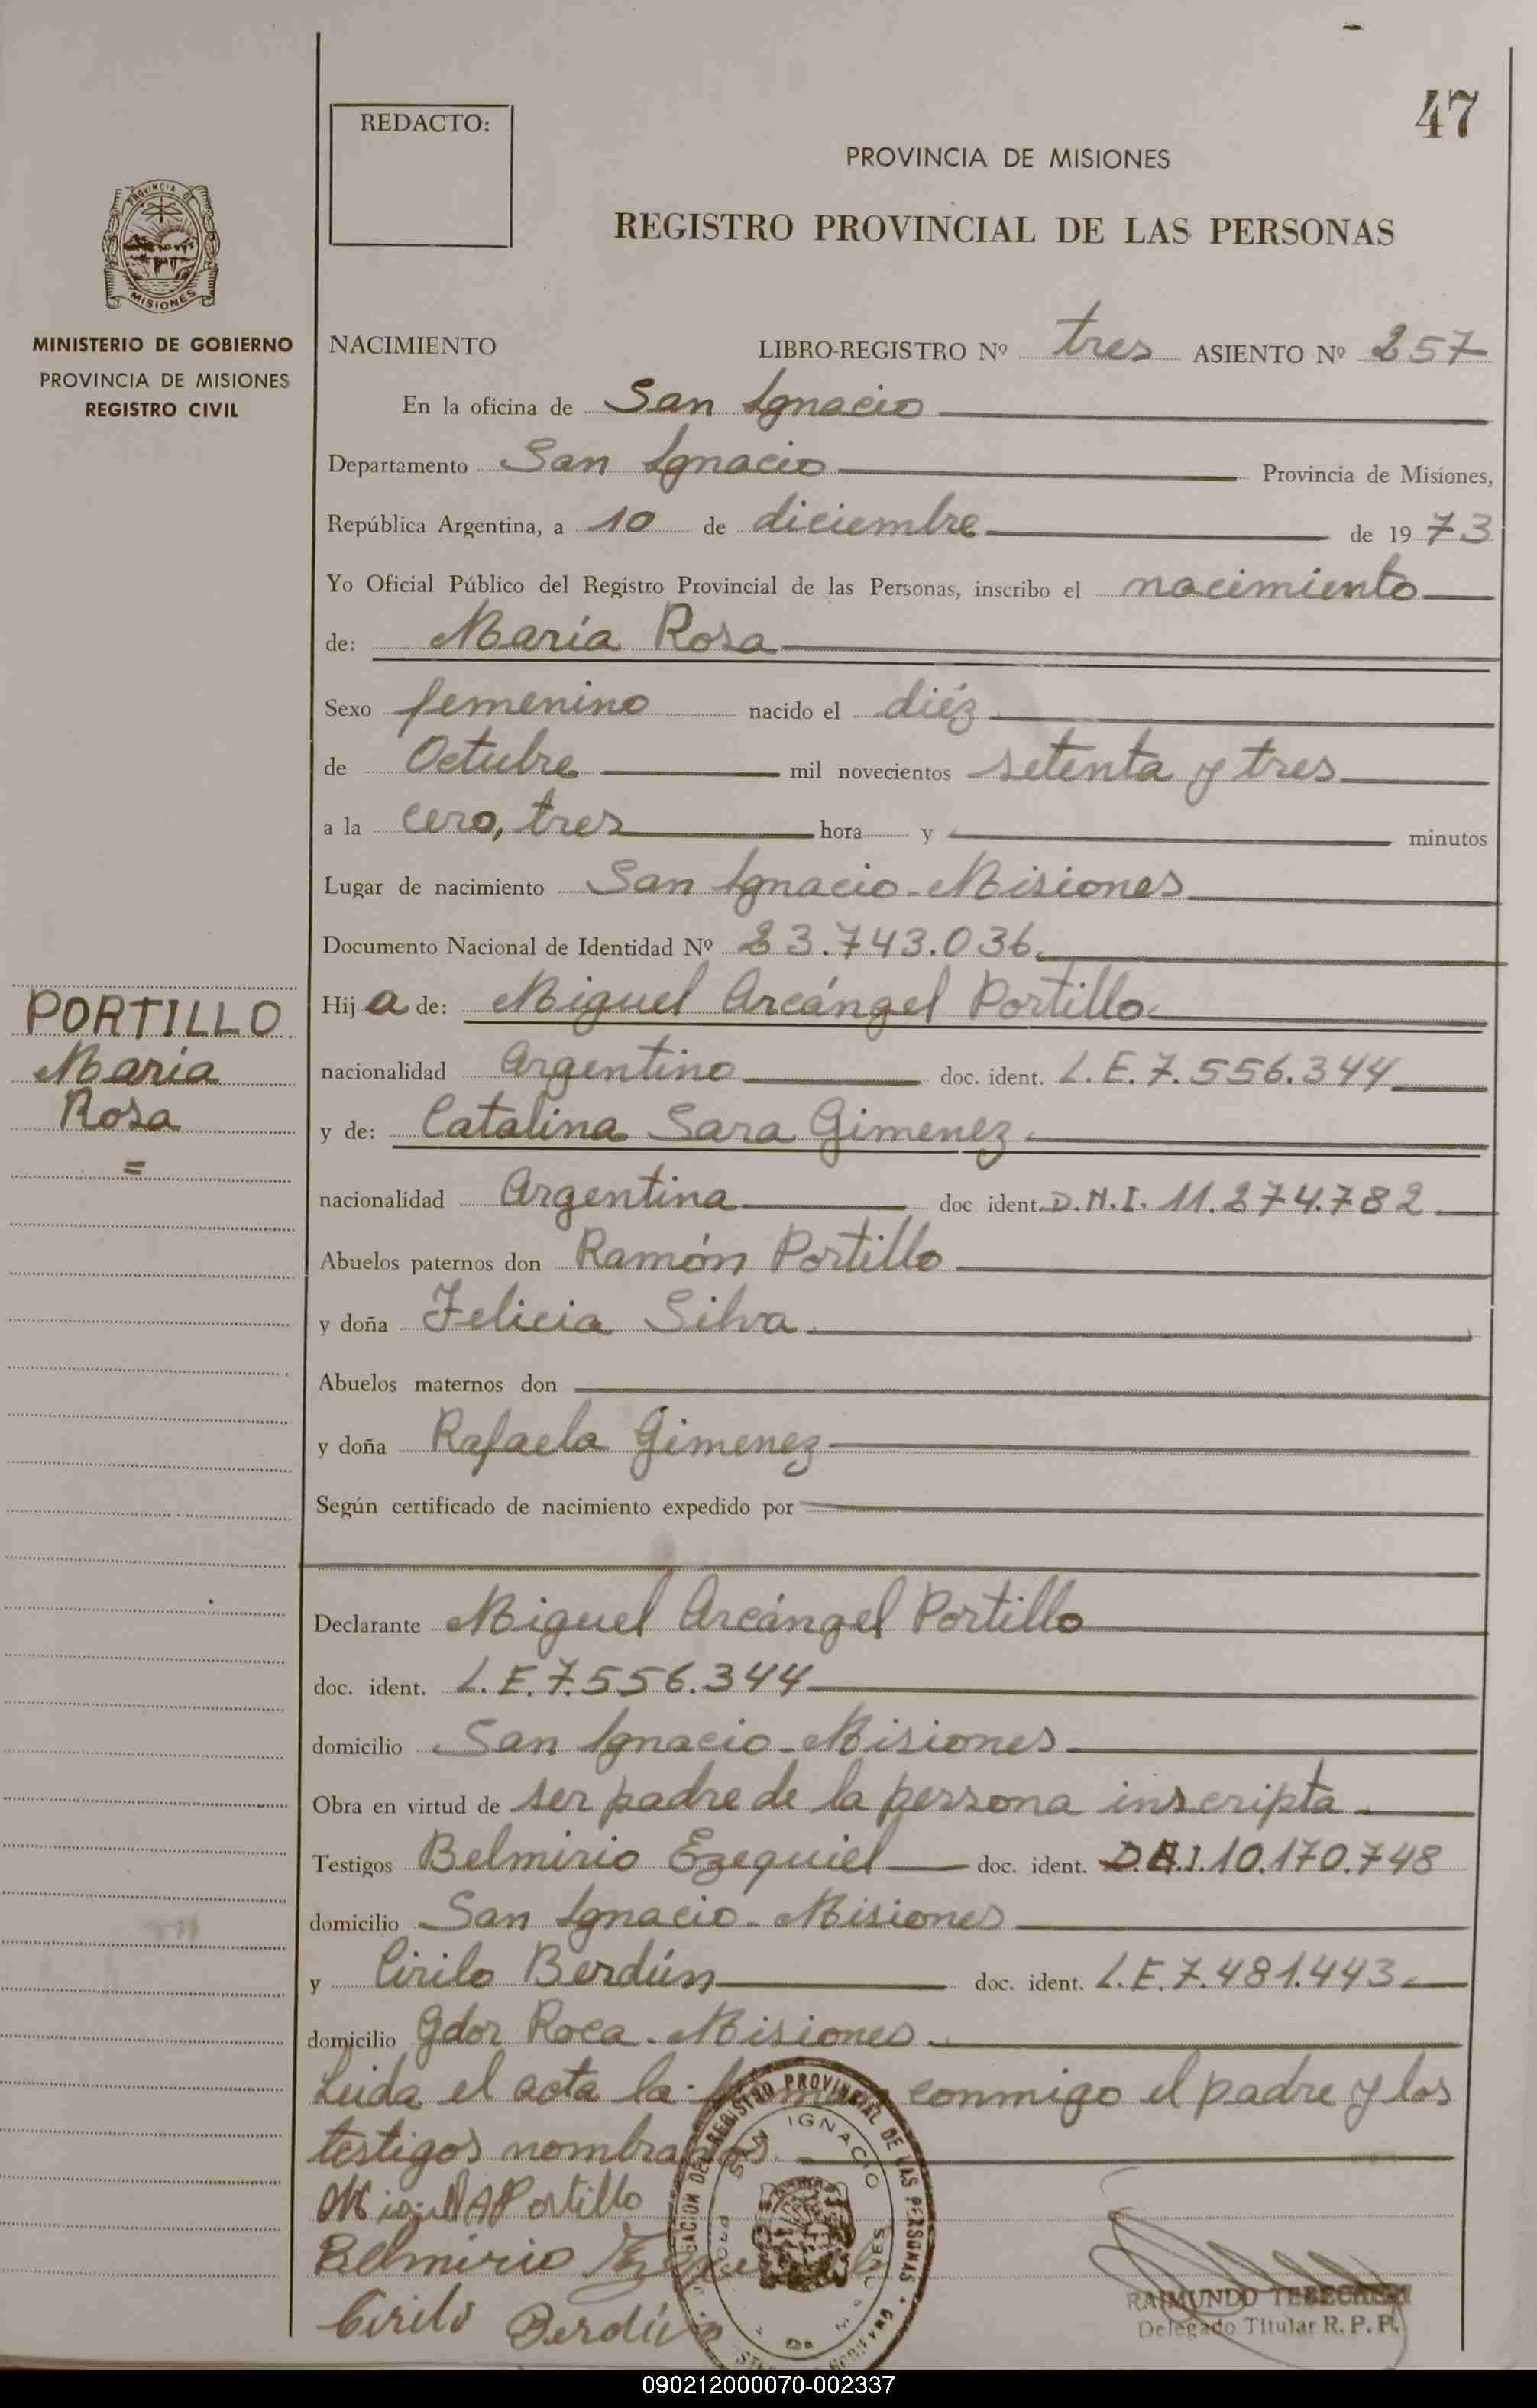 47
REDACTO:
PROVINCIA DE MISIONES
REGISTRO PROVINCIAL DE LAS PERSONAS
PROVINCIA DE
MISIONES
MINISTERIO DE GOBIERNO
PROVINCIA DE MISIONES
REGISTRO CIVIL
NACIMIENTO LIBRO-REGISTRO Nº tres ASIENTO Nº 257
En la oficina de San Ignacio
Departamento San Ignacio Provincia de Misiones,
República Argentina, a 10 de diciembre de 1973
Yo Oficial Público del Registro Provincial de las Personas, inscribo el nacimiento
de: María Rosa
Sexo femenino nacido el diéz
de Octubre mil novecientos setenta y tres
a la cero, tres hora y minutos
Lugar de nacimiento San Ignacio - Misiones
Documento Nacional de Identidad Nº 23.743.036.
PORTILLO
María
Rosa
=
Hija de: Miguel Arcángel Portillo.
nacionalidad Argentino doc. ident. L.E. 7.556.344
y de: Catalina Sara Gimenez.
nacionalidad Argentina doc ident. D.N.I. 11.274.782
Abuelos paternos don Ramón Portillo
y doña Felicia Silva
Abuelos maternos don
y doña Rafaela Gimenez
Según certificado de nacimiento expedido por
Declarante Miguel Arcángel Portillo
doc. ident. L.E. 7.556.344
domicilio San Ignacio - Misiones
Obra en virtud de ser padre de la persona inscripta
Testigos Belmirio Ezequiel doc. ident. D.N.I. 10.170.748
domicilio San Ignacio - Misiones
y Cirilo Berdún doc. ident. L.E. 7.481.443.
domicilio Gdor Roca - Misiones.
Leida el acta la conmigo el padre y los
testigos nombrados.
Miguel A Portillo
Belmirio
Cirilo Berdún
REGISTRO PROVINCIAL DE LAS PERSONAS
SAN IGNACIO
RAIMUNDO
Delegado Titular R. P. P.
090212000070-002337